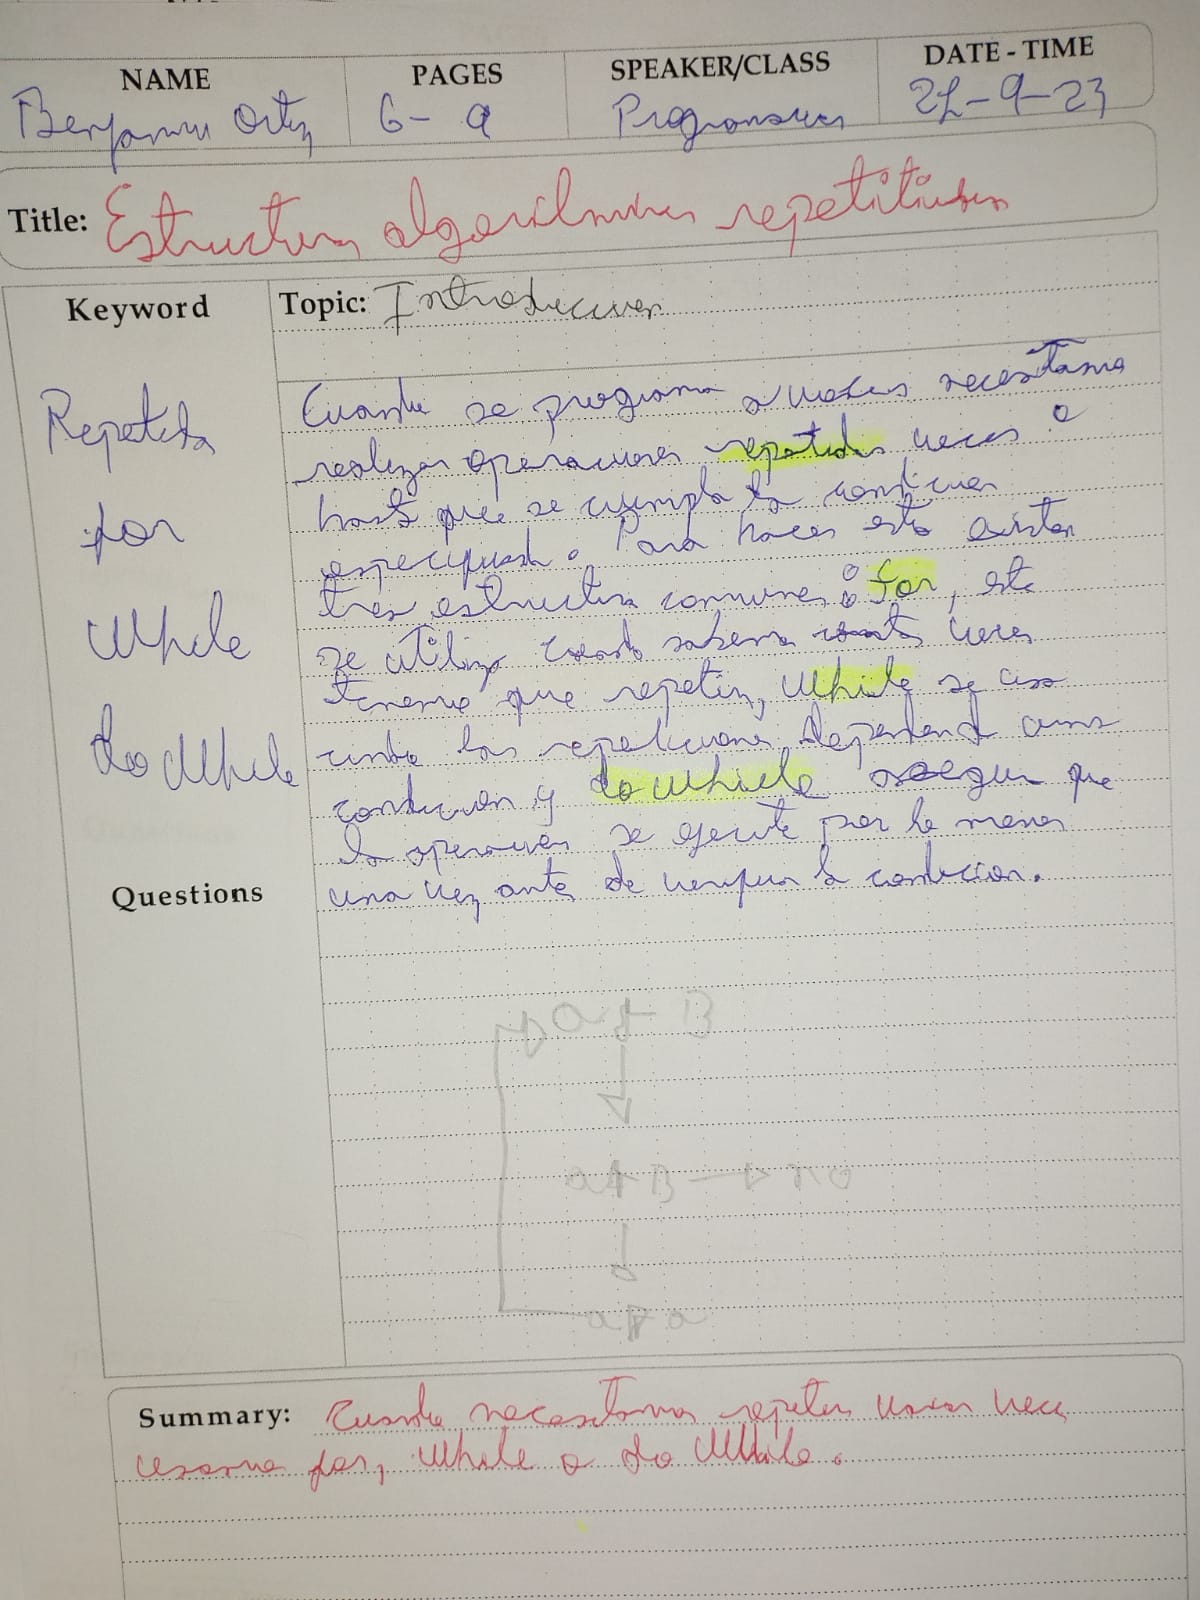 NAME
PAGES
SPEAKER/CLASS
DATE - TIME
Benjamin Ortiz
6- 9
Programacion
21-9-23
Title: Estructuras algoritmicas repetitivas
Keyword
Topic: Introduccion
Repetida
for
While
do While
Cuando se programa a veces necesitamos
realizar operaciones repetidas veces o
hasta que se cumpla la condicion
especificada. Para hacer esto existen
tres estructuras comunes: for, esta
se utiliza cuando sabemos cuantas veces
tenemos que repetir, While se usa
cuando las repeticiones dependen de una
condicion y do while asegura que
la operacion se ejecute por lo menos
una vez antes de verificar la condicion.
Questions
Summary: Cuando necesitamos repetir varias veces
usamos for, While o do While.